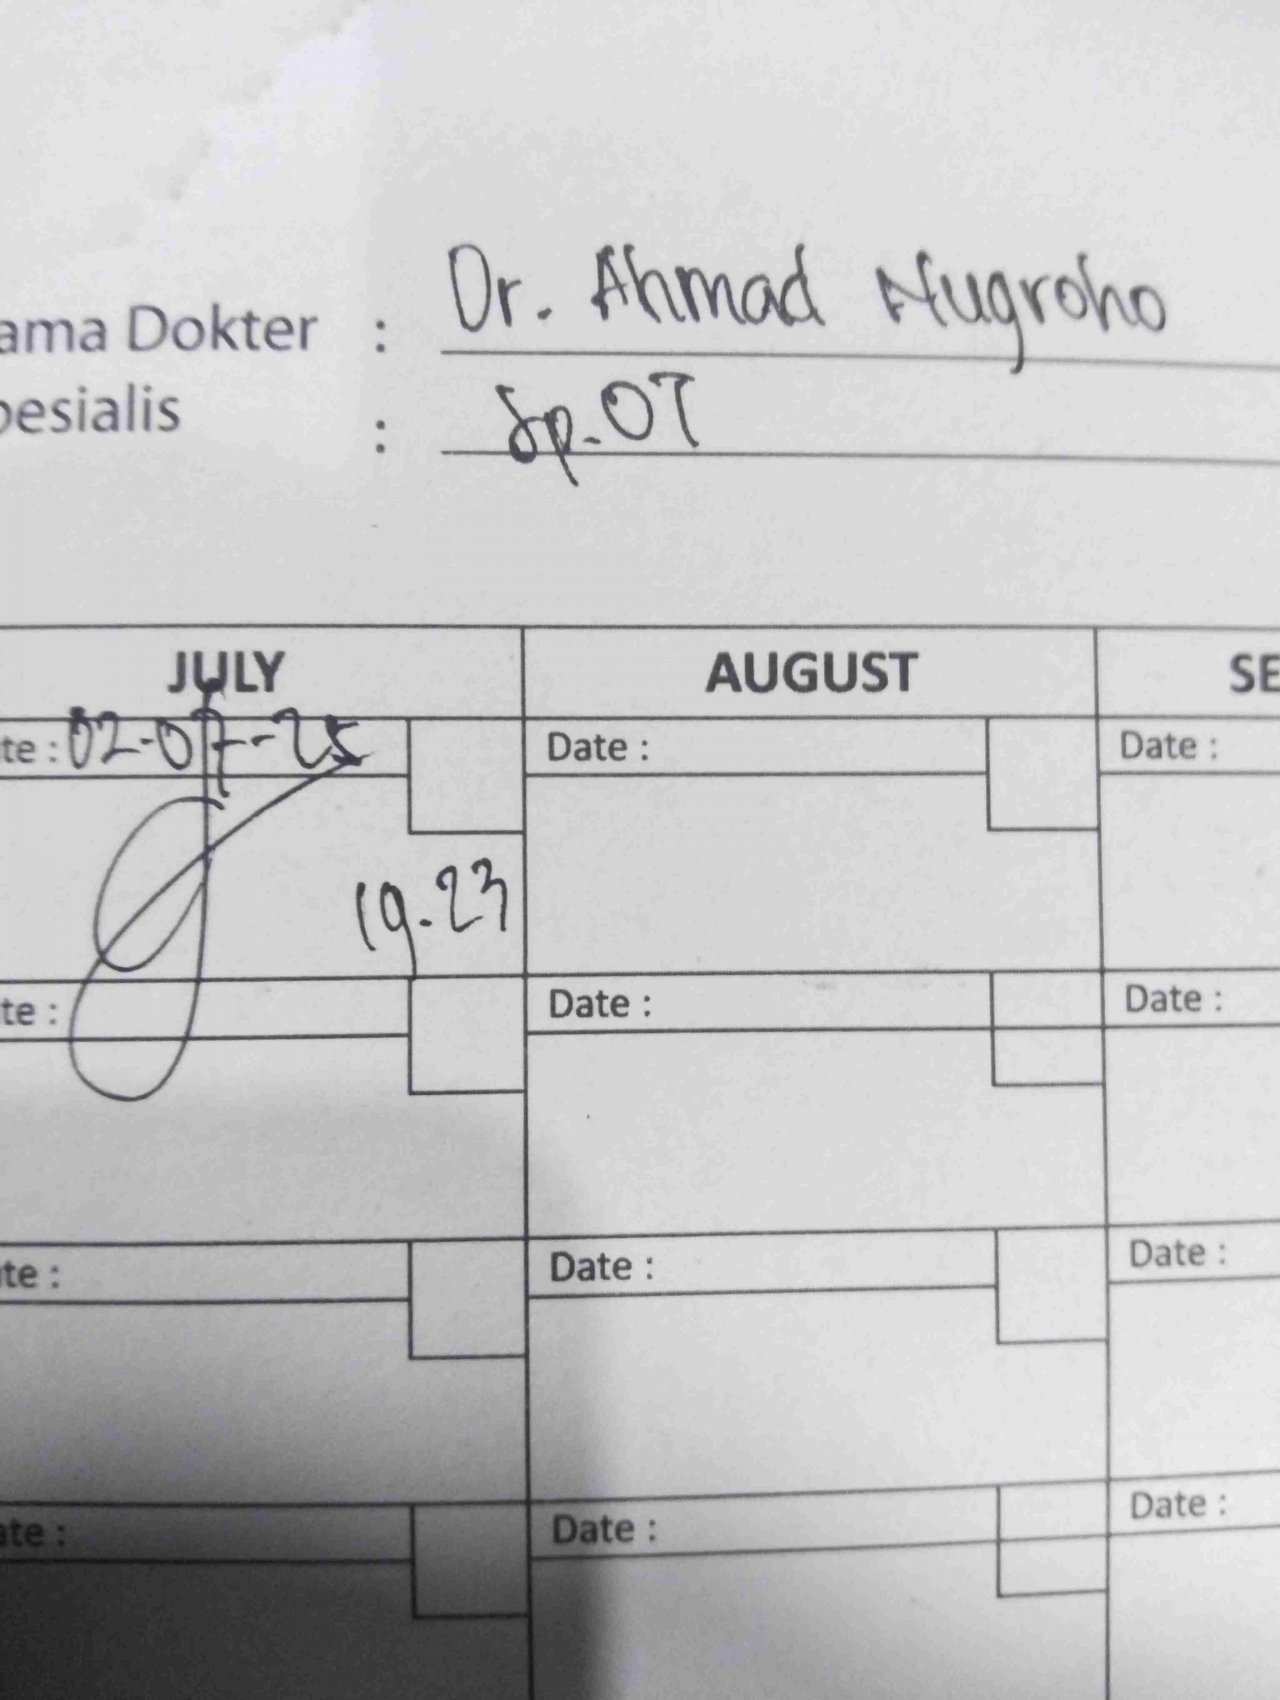 ama Dokter : Dr. Ahmad Nugroho
pesialis : Sp.OT
JULY AUGUST SE
te : 02-07-25 Date : Date :
19.23
te : Date : Date :
te : Date : Date :
ate : Date : Date :